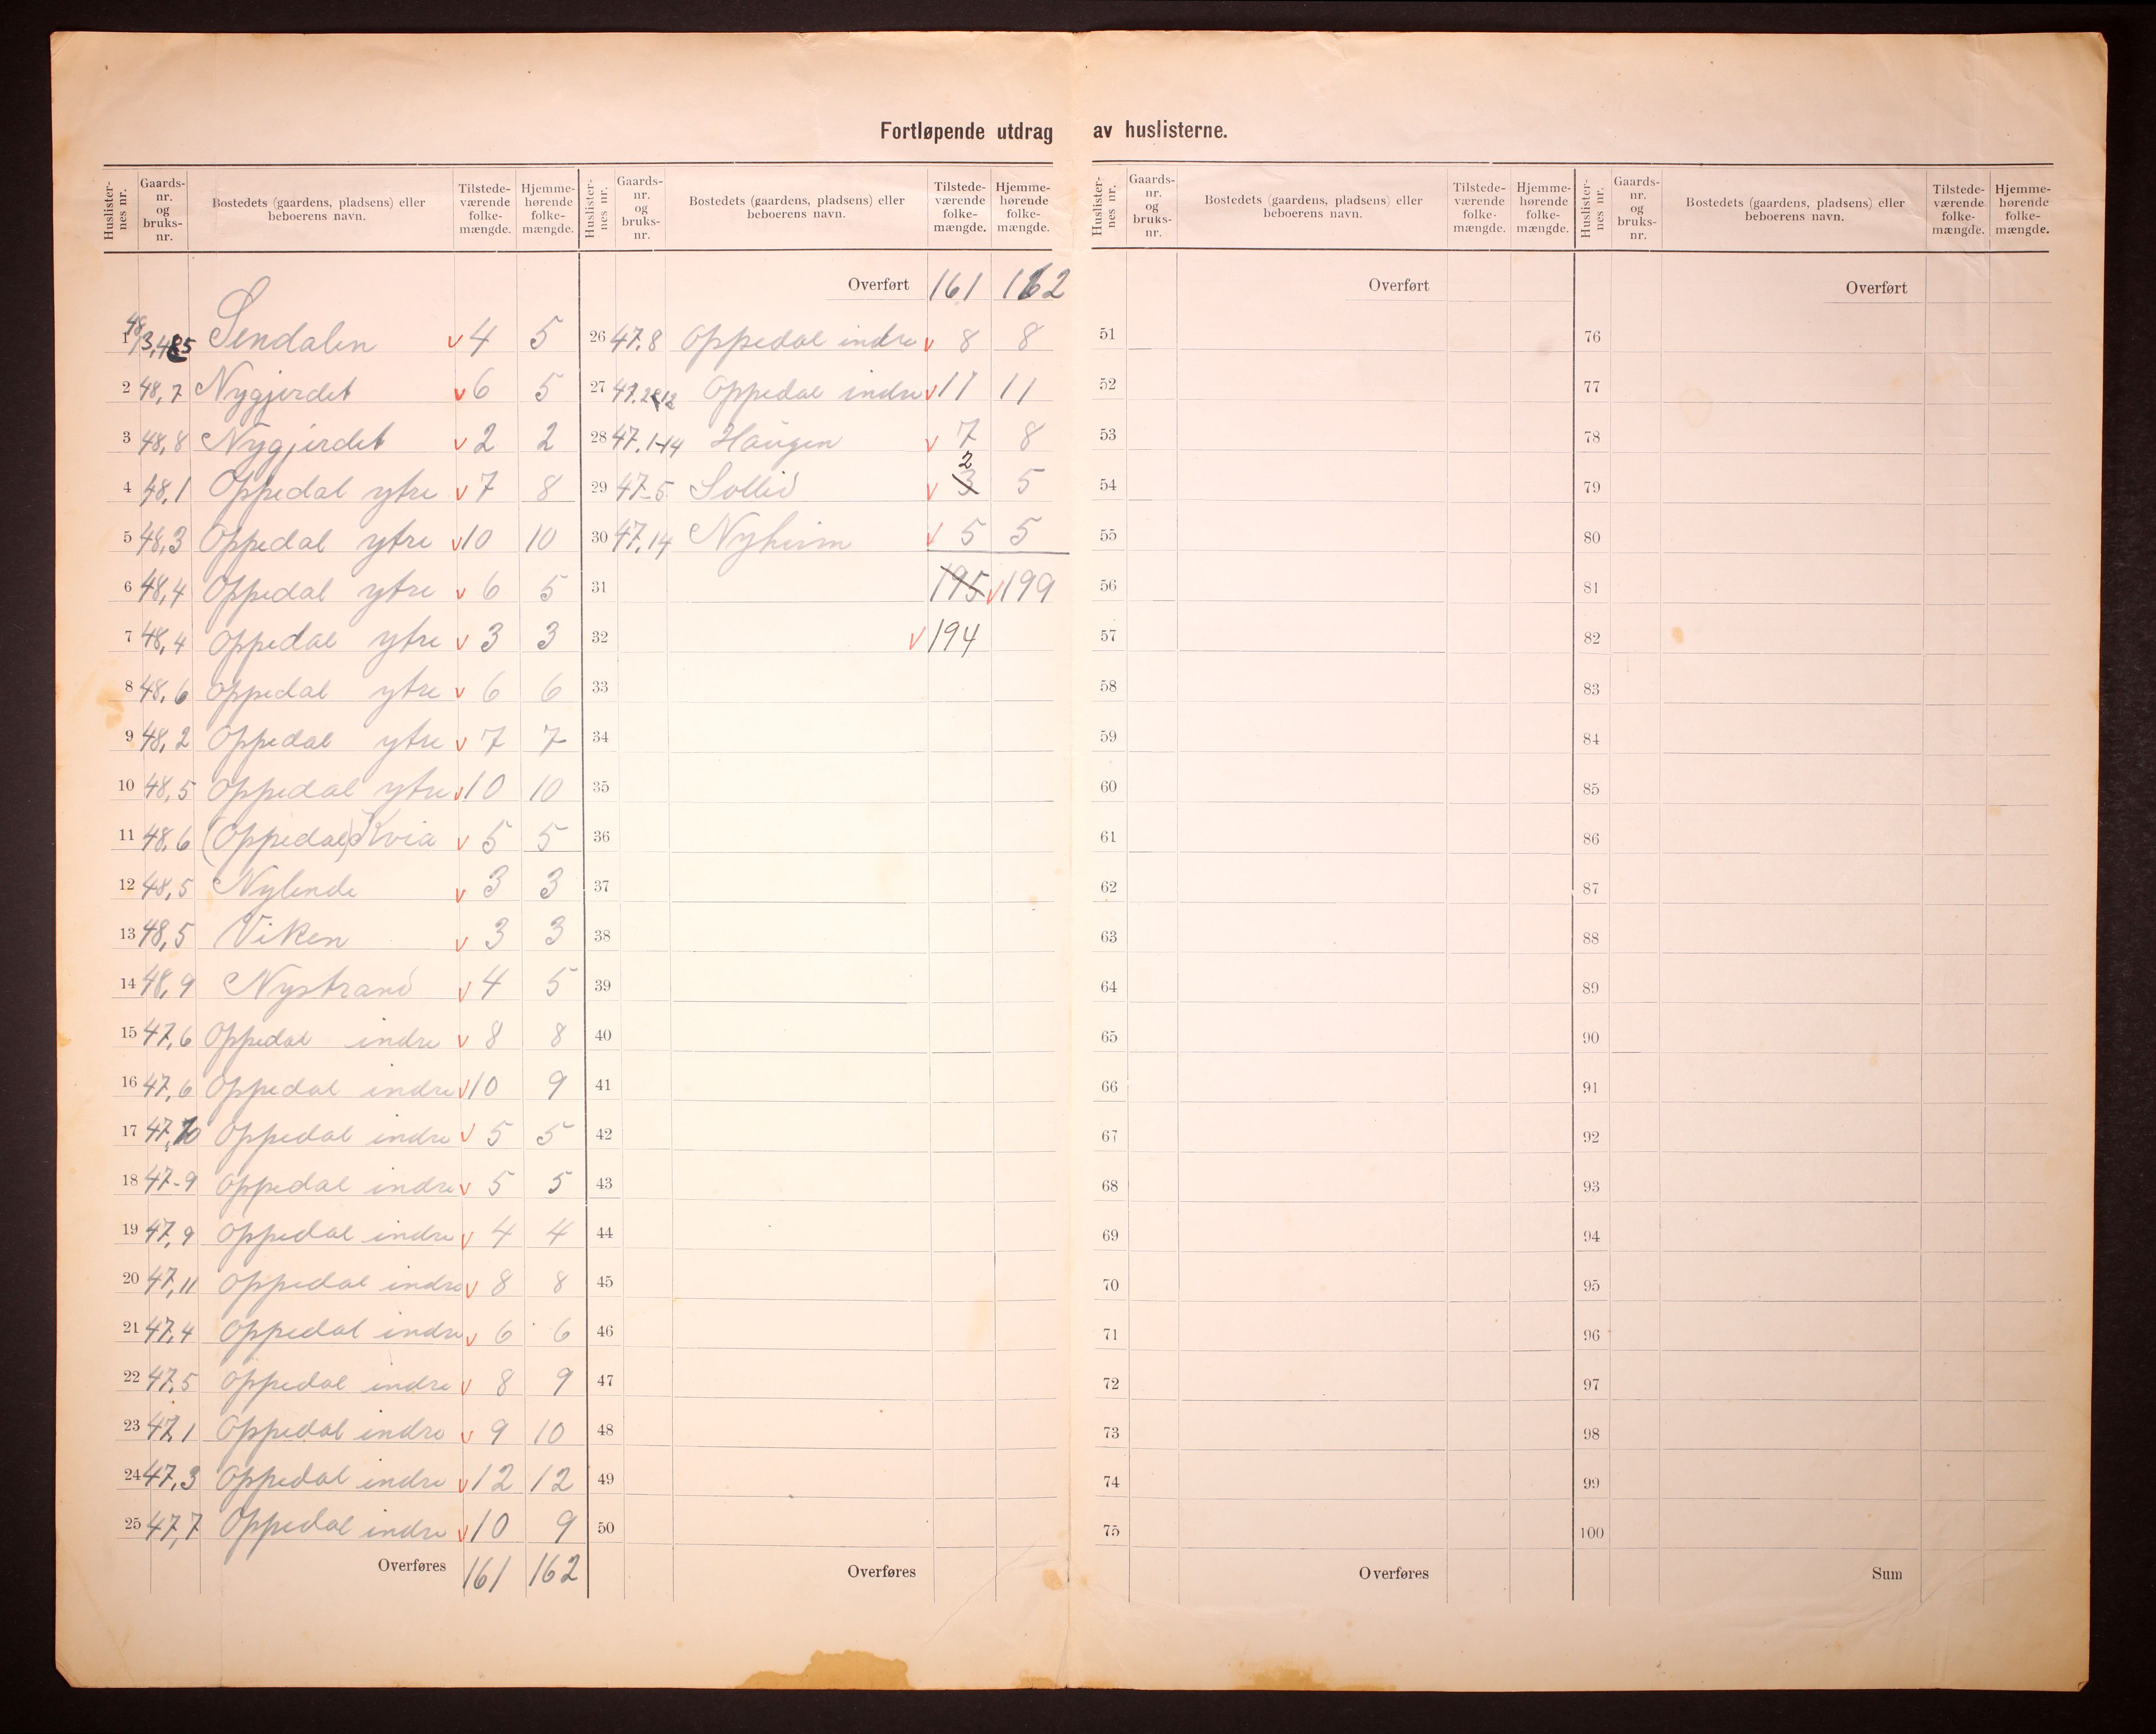 Fortløpende utdrag av huslisterne.
Huslisternes nr. Gaards-nr. og bruks-nr. Bostedets (gaardens, pladsens) eller beboerens navn. Tilstede-værende folke-mængde. Hjemme-hørende folke-mængde.
1 48 3,4&5 Sendalen v 4 5
2 48,7 Nygjerdet v 6 5
3 48,8 Nygjerdet v 2 2
4 48,1 Oppedal ytre v 7 8
5 48,3 Oppedal ytre v 10 10
6 48,4 Oppedal ytre v 6 5
7 48,4 Oppedal ytre v 3 3
8 48,6 Oppedal ytre v 6 6
9 48,2 Oppedal ytre v 7 7
10 48,5 Oppedal ytre v 10 10
11 48,6 (Oppedal) Kvia v 5 5
12 48,5 Nylende v 3 3
13 48,5 Viken v 3 3
14 48,9 Nystrand v 4 5
15 47,6 Oppedal indre v 8 8
16 47,6 Oppedal indre v 10 9
17 47,10 Oppedal indre v 5 5
18 47-9 Oppedal indre v 5 5
19 47,9 Oppedal indre v 4 4
20 47,11 Oppedal indre v 8 8
21 47,4 Oppedal indre v 6 6
22 47,5 Oppedal indre v 8 9
23 47,1 Oppedal indre v 9 10
24 47,3 Oppedal indre v 12 12
25 47,7 Oppedal indre v 10 9
Overføres 161 162
Huslisternes nr. Gaards-nr. og bruks-nr. Bostedets (gaardens, pladsens) eller beboerens navn. Tilstede-værende folke-mængde. Hjemme-hørende folke-mængde.
Overført 161 162
26 47,8 Oppedal indre v 8 8
27 47,2&12 Oppedal indre v 11 11
28 47,1-14 Haugen v 7 8
29 47-5 Sollid v 3 2 5
30 47,14 Nyheim v 5 5
31 195 v 199
32 v 194
33
34
35
36
37
38
39
40
41
42
43
44
45
46
47
48
49
50
Overføres
Huslisternes nr. Gaards-nr. og bruks-nr. Bostedets (gaardens, pladsens) eller beboerens navn. Tilstede-værende folke-mængde. Hjemme-hørende folke-mængde.
Overført
51
52
53
54
55
56
57
58
59
60
61
62
63
64
65
66
67
68
69
70
71
72
73
74
75
Overføres
Huslisternes nr. Gaards-nr. og bruks-nr. Bostedets (gaardens, pladsens) eller beboerens navn. Tilstede-værende folke-mængde. Hjemme-hørende folke-mængde.
Overført
76
77
78
79
80
81
82
83
84
85
86
87
88
89
90
91
92
93
94
95
96
97
98
99
100
Sum